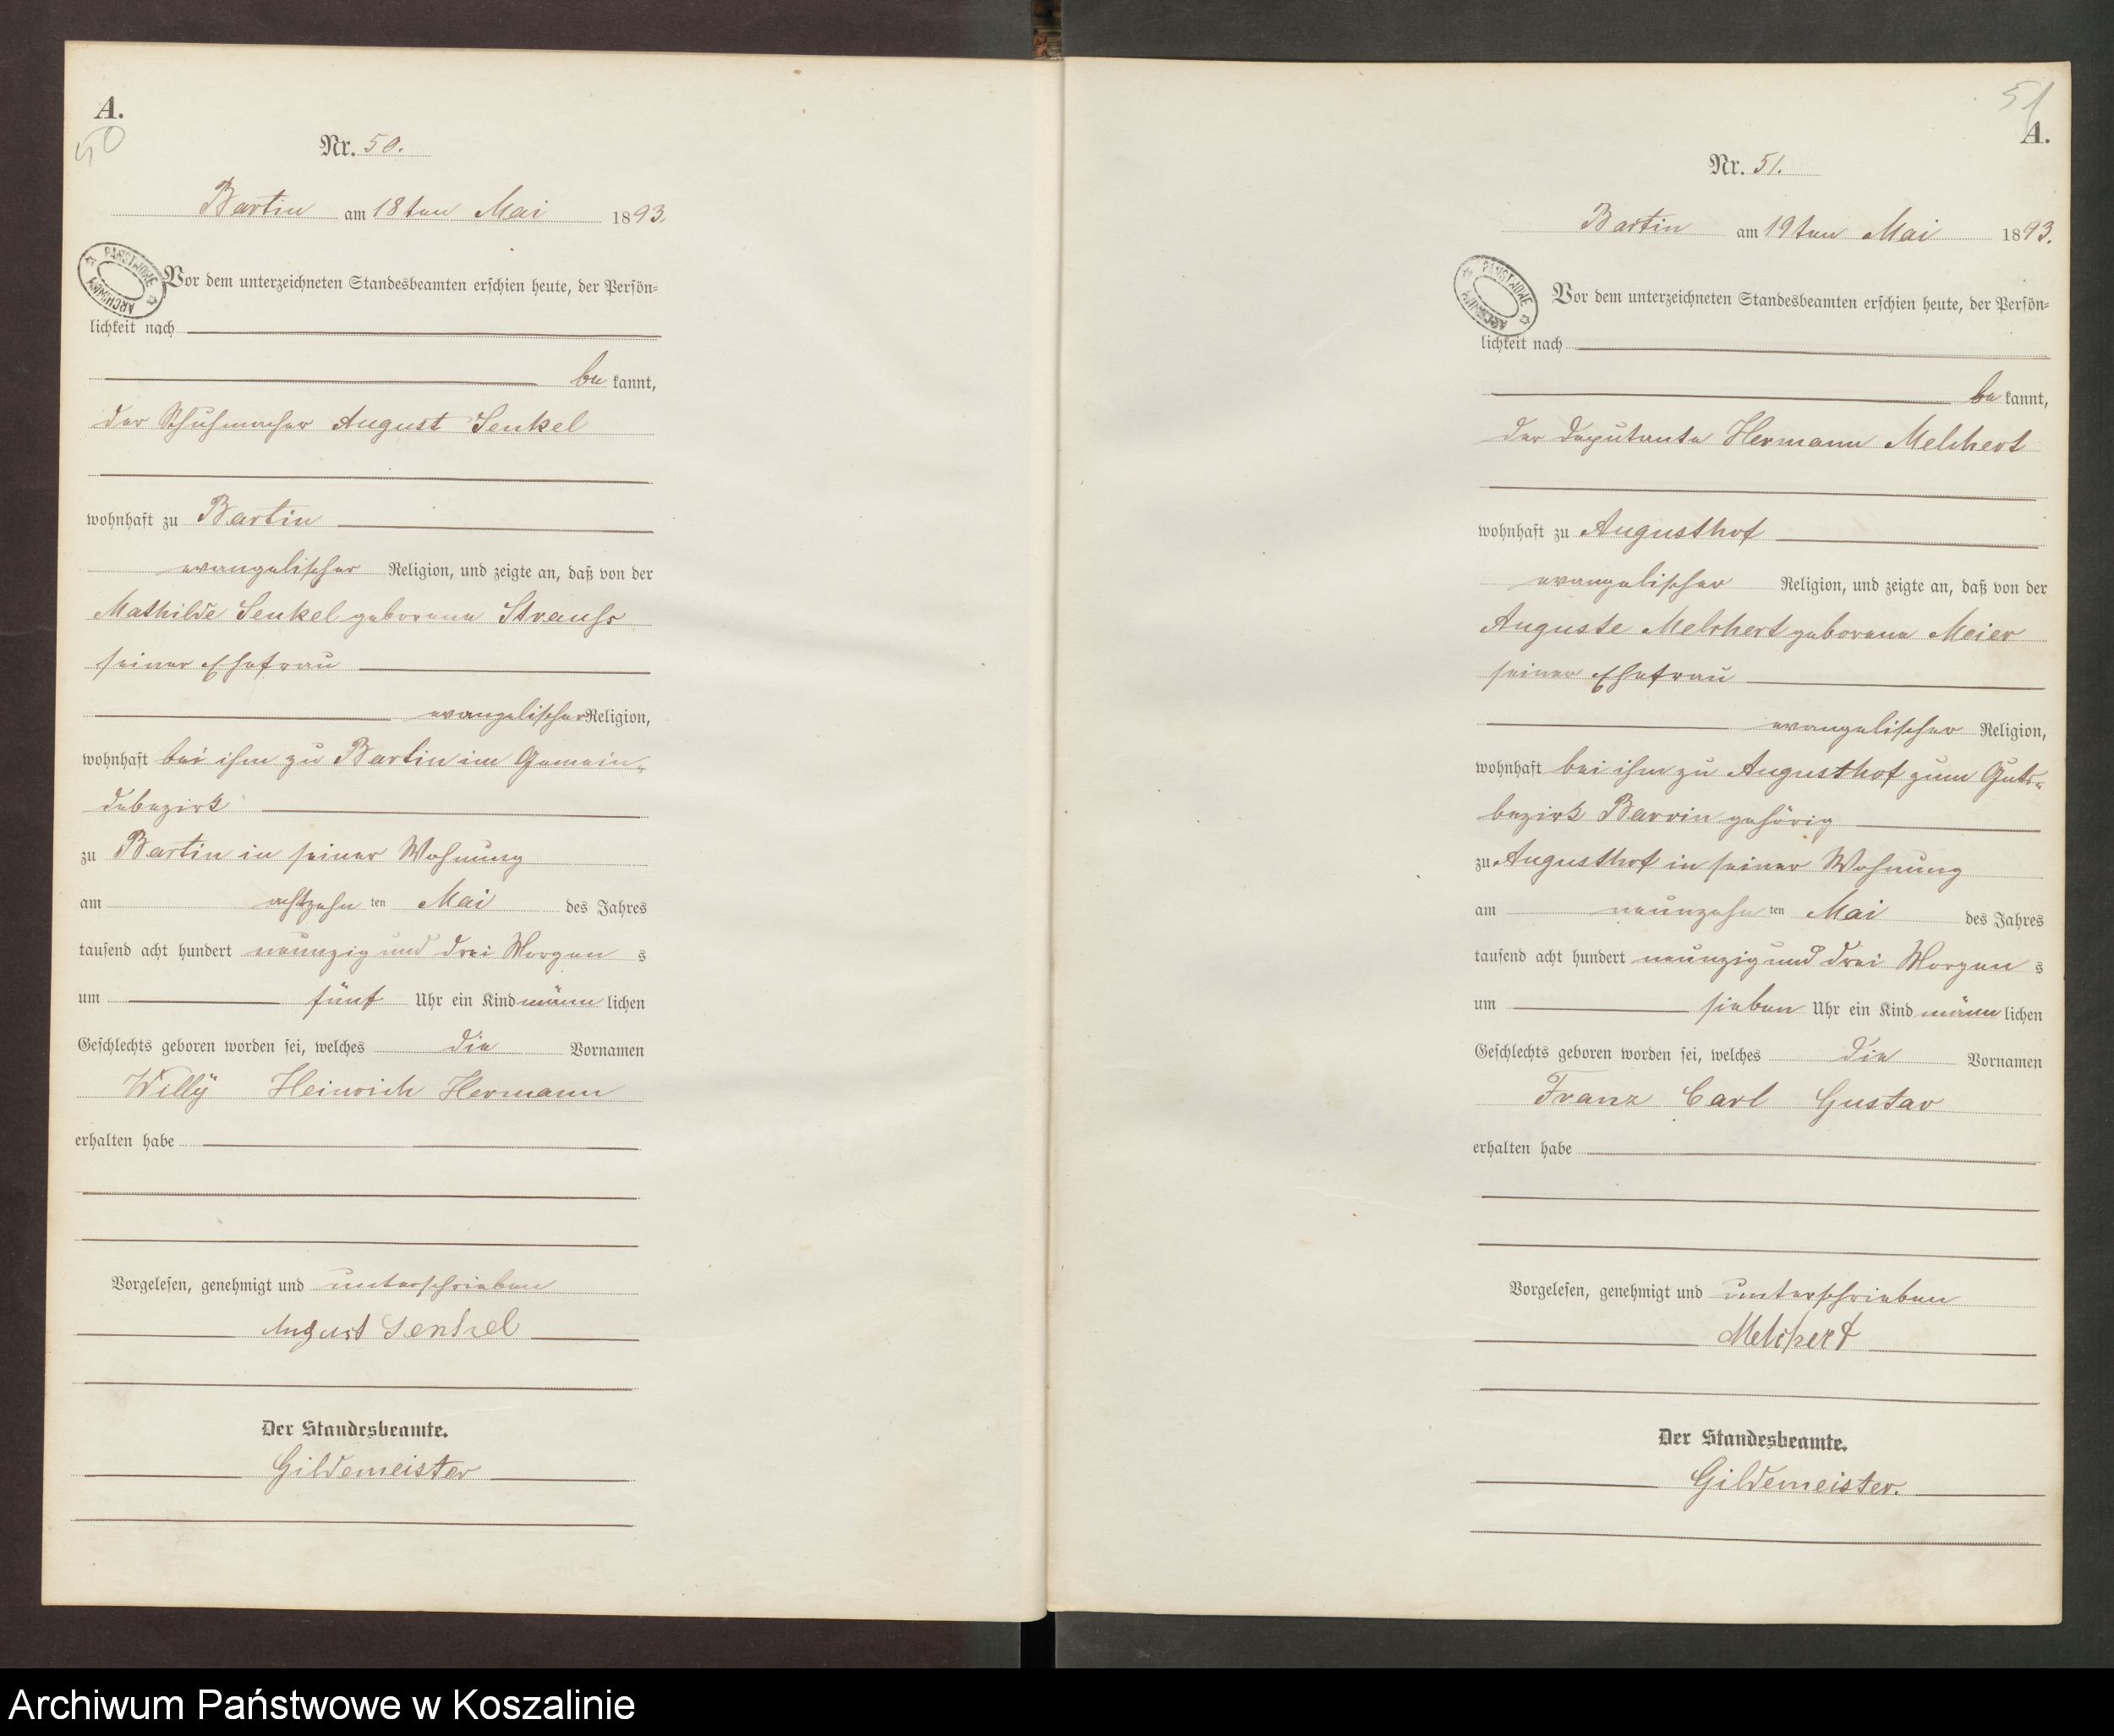 A.
50
Nr. 50.
Bartin am 18ten Mai 1893.
PAŃSTWOWE ARCHIWUM
Vor dem unterzeichneten Standesbeamten erschien heute, der Persön-
lichkeit nach
be kannt,
der Schuhmacher August Senkel
wohnhaft zu Bartin
evangelischer Religion, und zeigte an, daß von der
Mathilde Senkel geborene Strauß
seiner Ehefrau
evangelischer Religion,
wohnhaft bei ihm zu Bartin im Gemein-
debezirk
zu Bartin in seiner Wohnung
am achtzehn ten Mai des Jahres
tausend acht hundert neunzig und drei Morgen s
um fünf Uhr ein Kind männ lichen
Geschlechts geboren worden sei, welches die Vornamen
Willÿ Heinrich Hermann
erhalten habe
Vorgelesen, genehmigt und unterschrieben
August Senkel
Der Standesbeamte.
Gildemeister
51
A.
Nr. 51.
Bartin am 19ten Mai 1893.
PAŃSTWOWE ARCHIWUM
Vor dem unterzeichneten Standesbeamten erschien heute, der Persön-
lichkeit nach
be kannt,
der Deputante Hermann Melchert
wohnhaft zu Augusthof
evangelischer Religion, und zeigte an, daß von der
Auguste Melchert geborene Meier
seiner Ehefrau
evangelischer Religion,
wohnhaft bei ihm zu Augusthof zum Guts-
bezirk Barvin gehörig
zu Augusthof in seiner Wohnung
am neunzehn ten Mai des Jahres
tausend acht hundert neunzig und drei Morgen s
um sieben Uhr ein Kind männ lichen
Geschlechts geboren worden sei, welches die Vornamen
Franz Carl Gustav
erhalten habe
Vorgelesen, genehmigt und unterschrieben
Melchert
Der Standesbeamte.
Gildemeister.
Archiwum Państwowe w Koszalinie